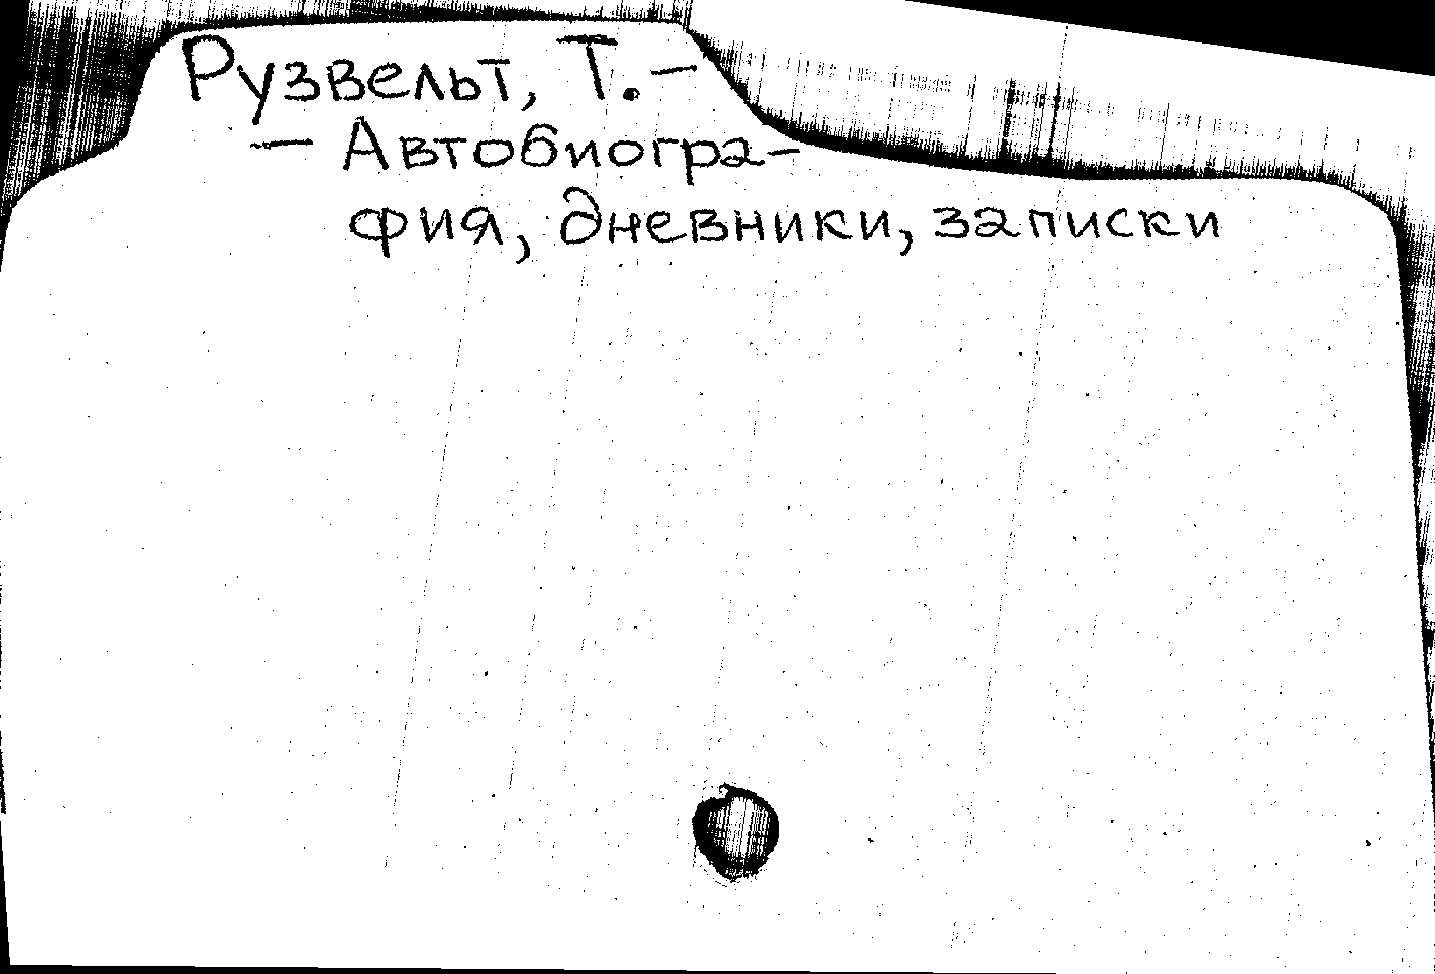 Рузвельт, Т. –
– Автобиогра-
фия, дневники, записки